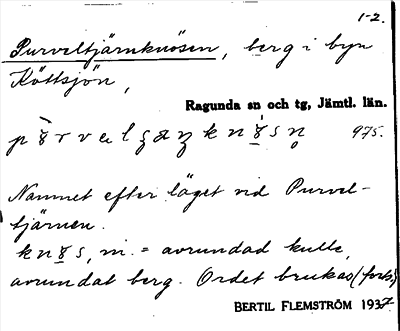 1-2.
Purveltjärnknösen, berg i byn
Köttsjön,
Ragunda sn och tg, Jämtl. län.
975.
Namnet efter läget vid Purvel-
tjärnen.
m. = avrundad kulle,
avrundat berg. Ordet brukas (forts)
BERTIL FLEMSTRÖM 1937